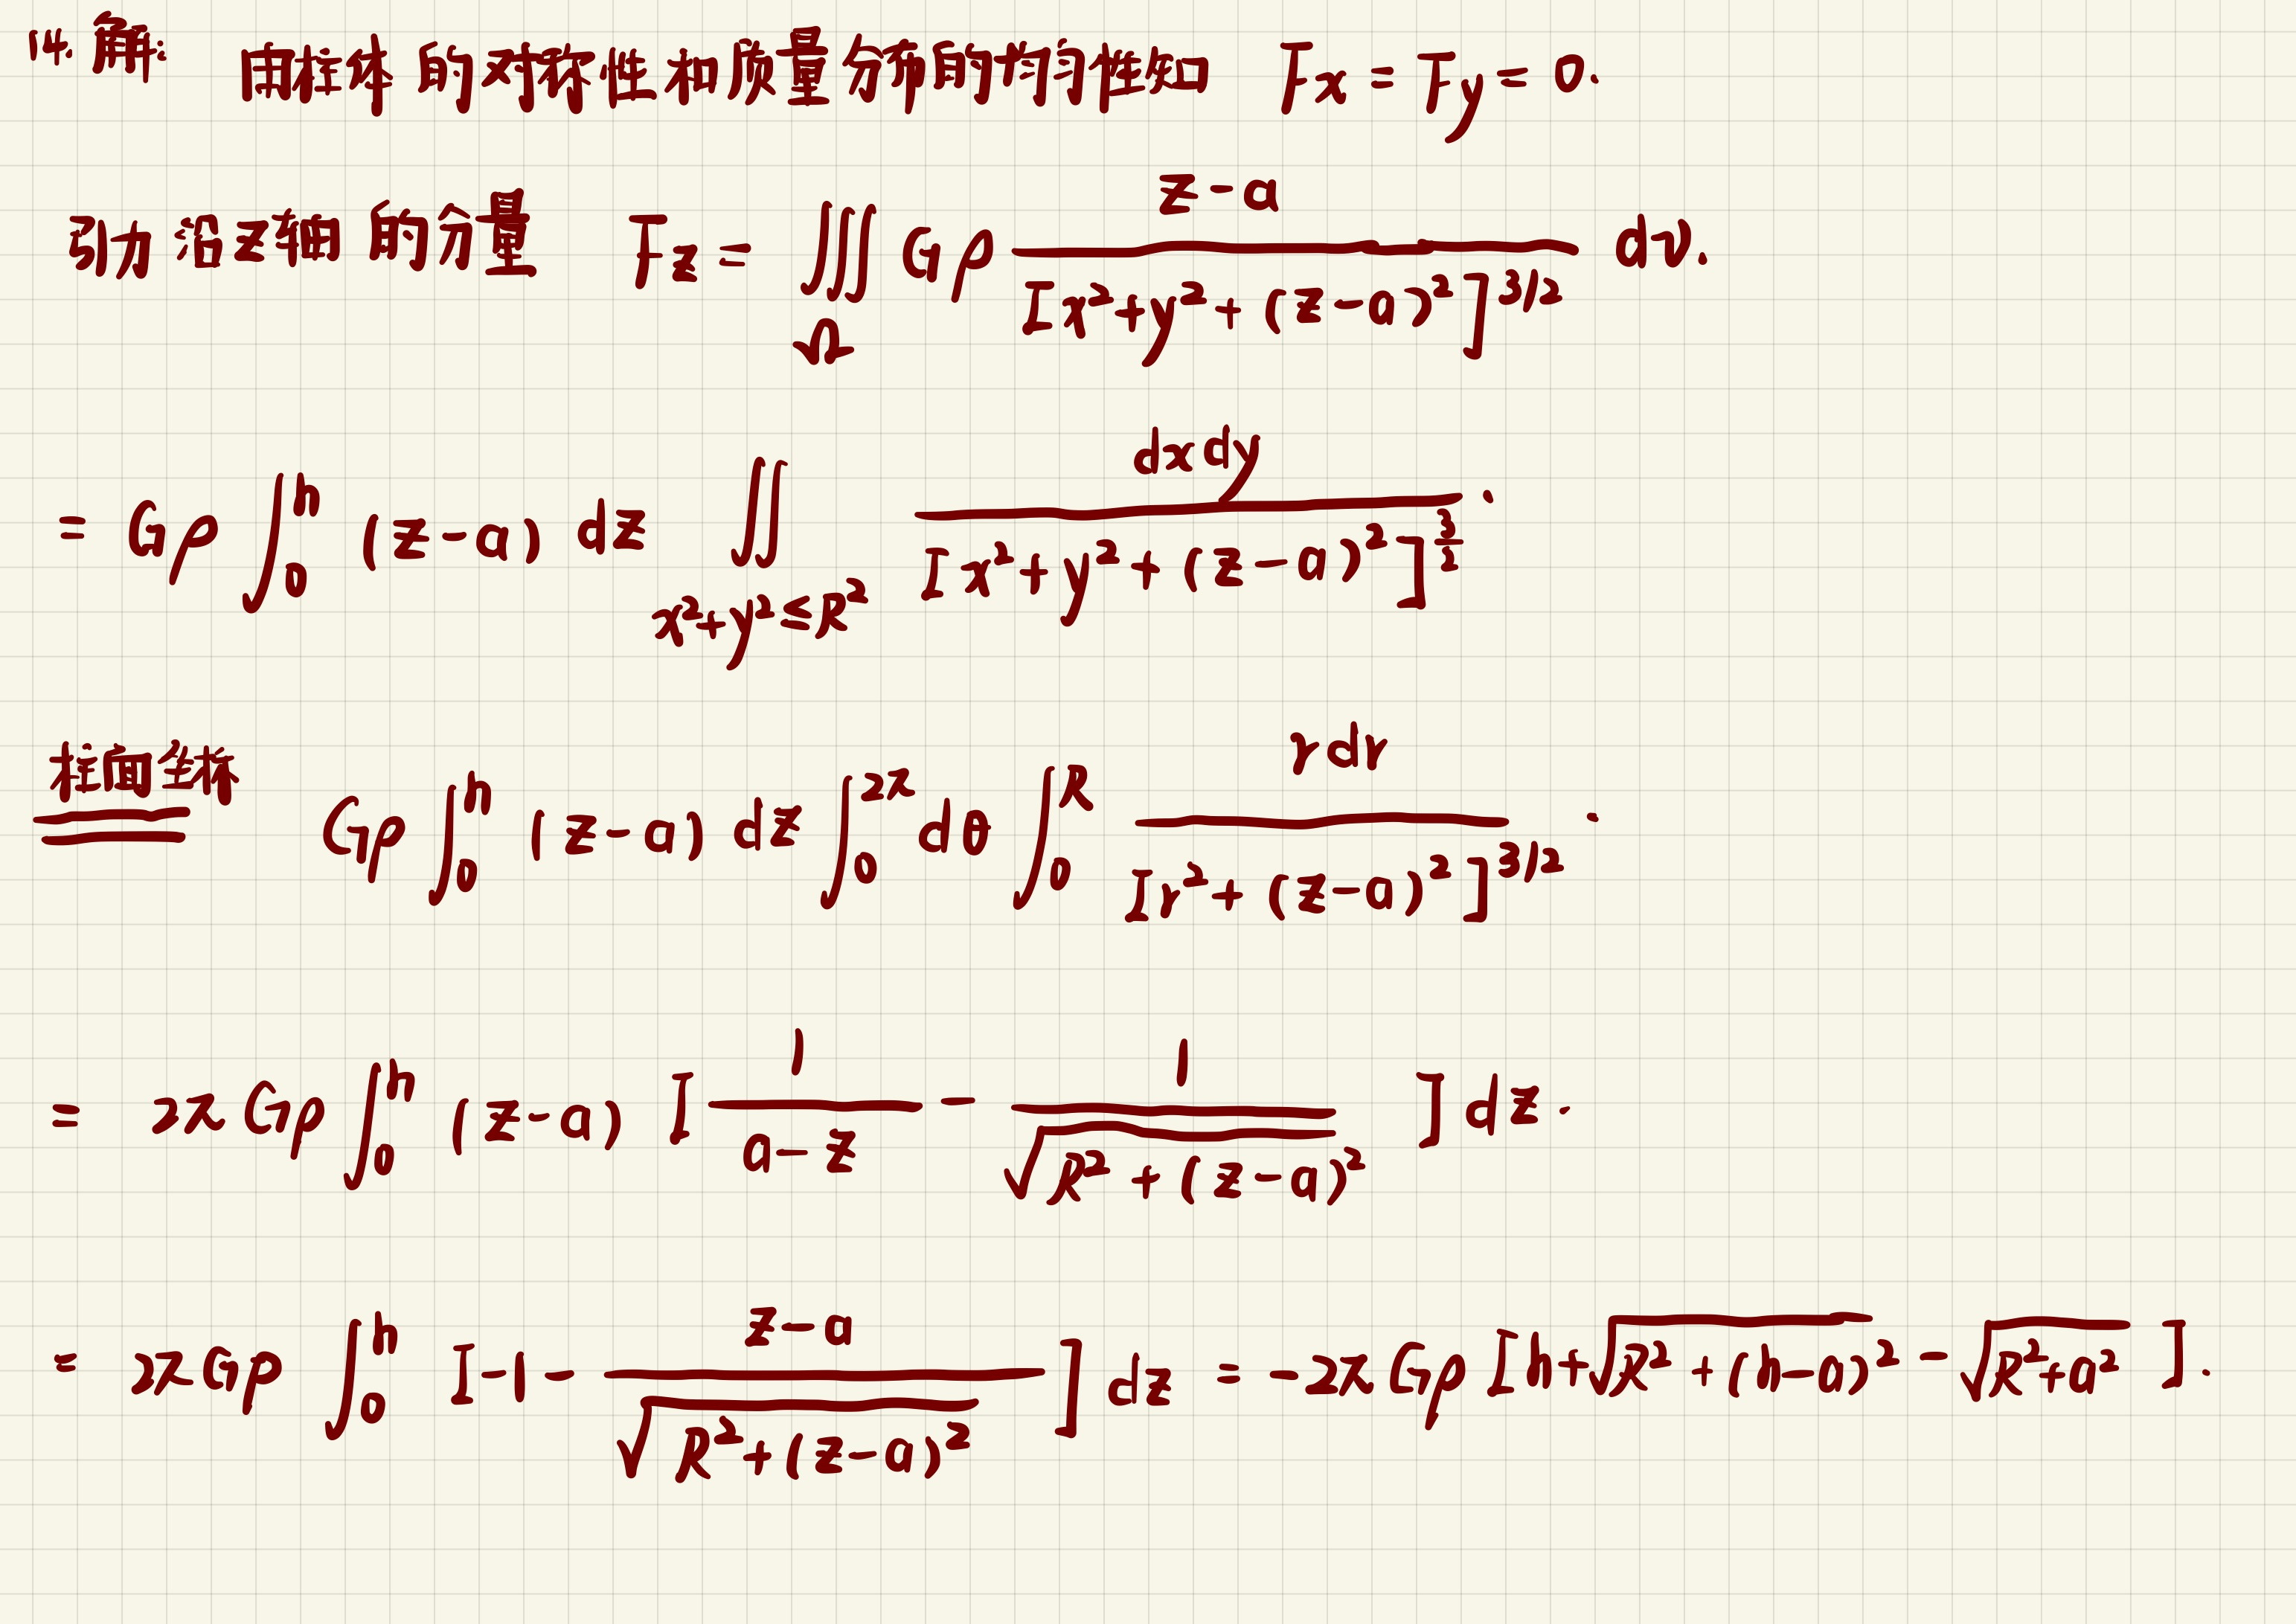 14. 解: 由柱体的对称性和质量分布的均匀性知 Fx = Fy = 0.
引力沿z轴的分量 Fz = ∭_Ω Gρ (z-a)/[x²+y²+(z-a)²]^{3/2} dv.
= Gρ ∫_0^h (z-a) dz ∬_{x²+y²≤R²} dxdy/[x²+y²+(z-a)²]^{3/2}.
柱面坐标 Gρ ∫_0^h (z-a) dz ∫_0^{2π} dθ ∫_0^R rdr/[r²+(z-a)²]^{3/2}.
= 2πGρ ∫_0^h (z-a) [1/(a-z) - 1/√(R²+(z-a)²)] dz.
= 2πGρ ∫_0^h [-1 - (z-a)/√(R²+(z-a)²)] dz = -2πGρ [h+√(R²+(h-a)²) - √(R²+a²)].